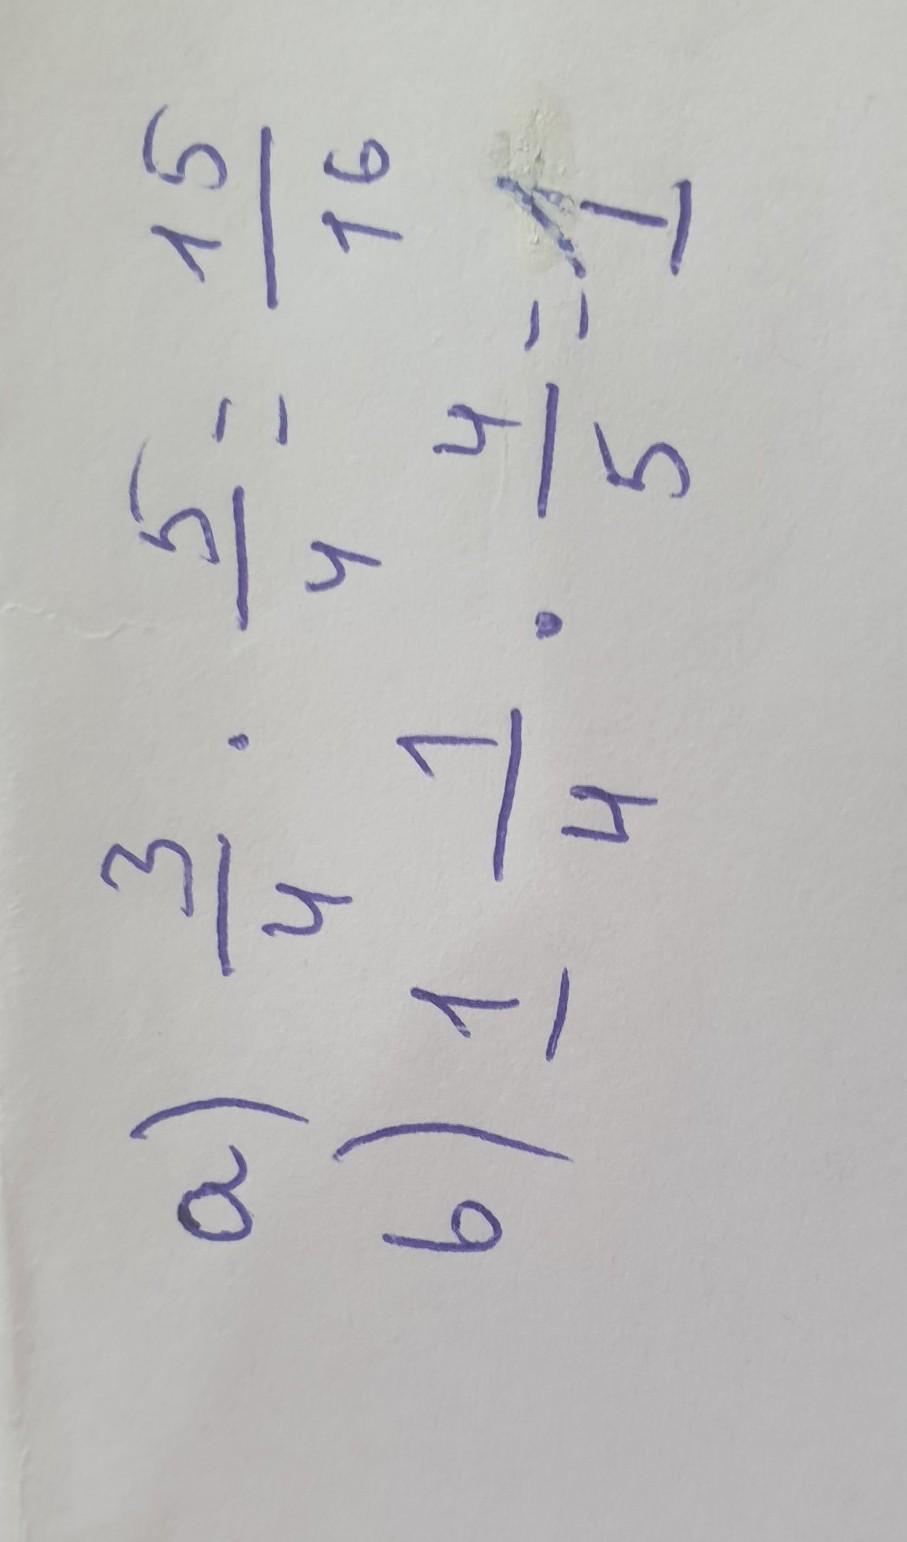 a) 3/4 · 5/4 = 15/16
b) 1 1/4 · 4/5 = 1